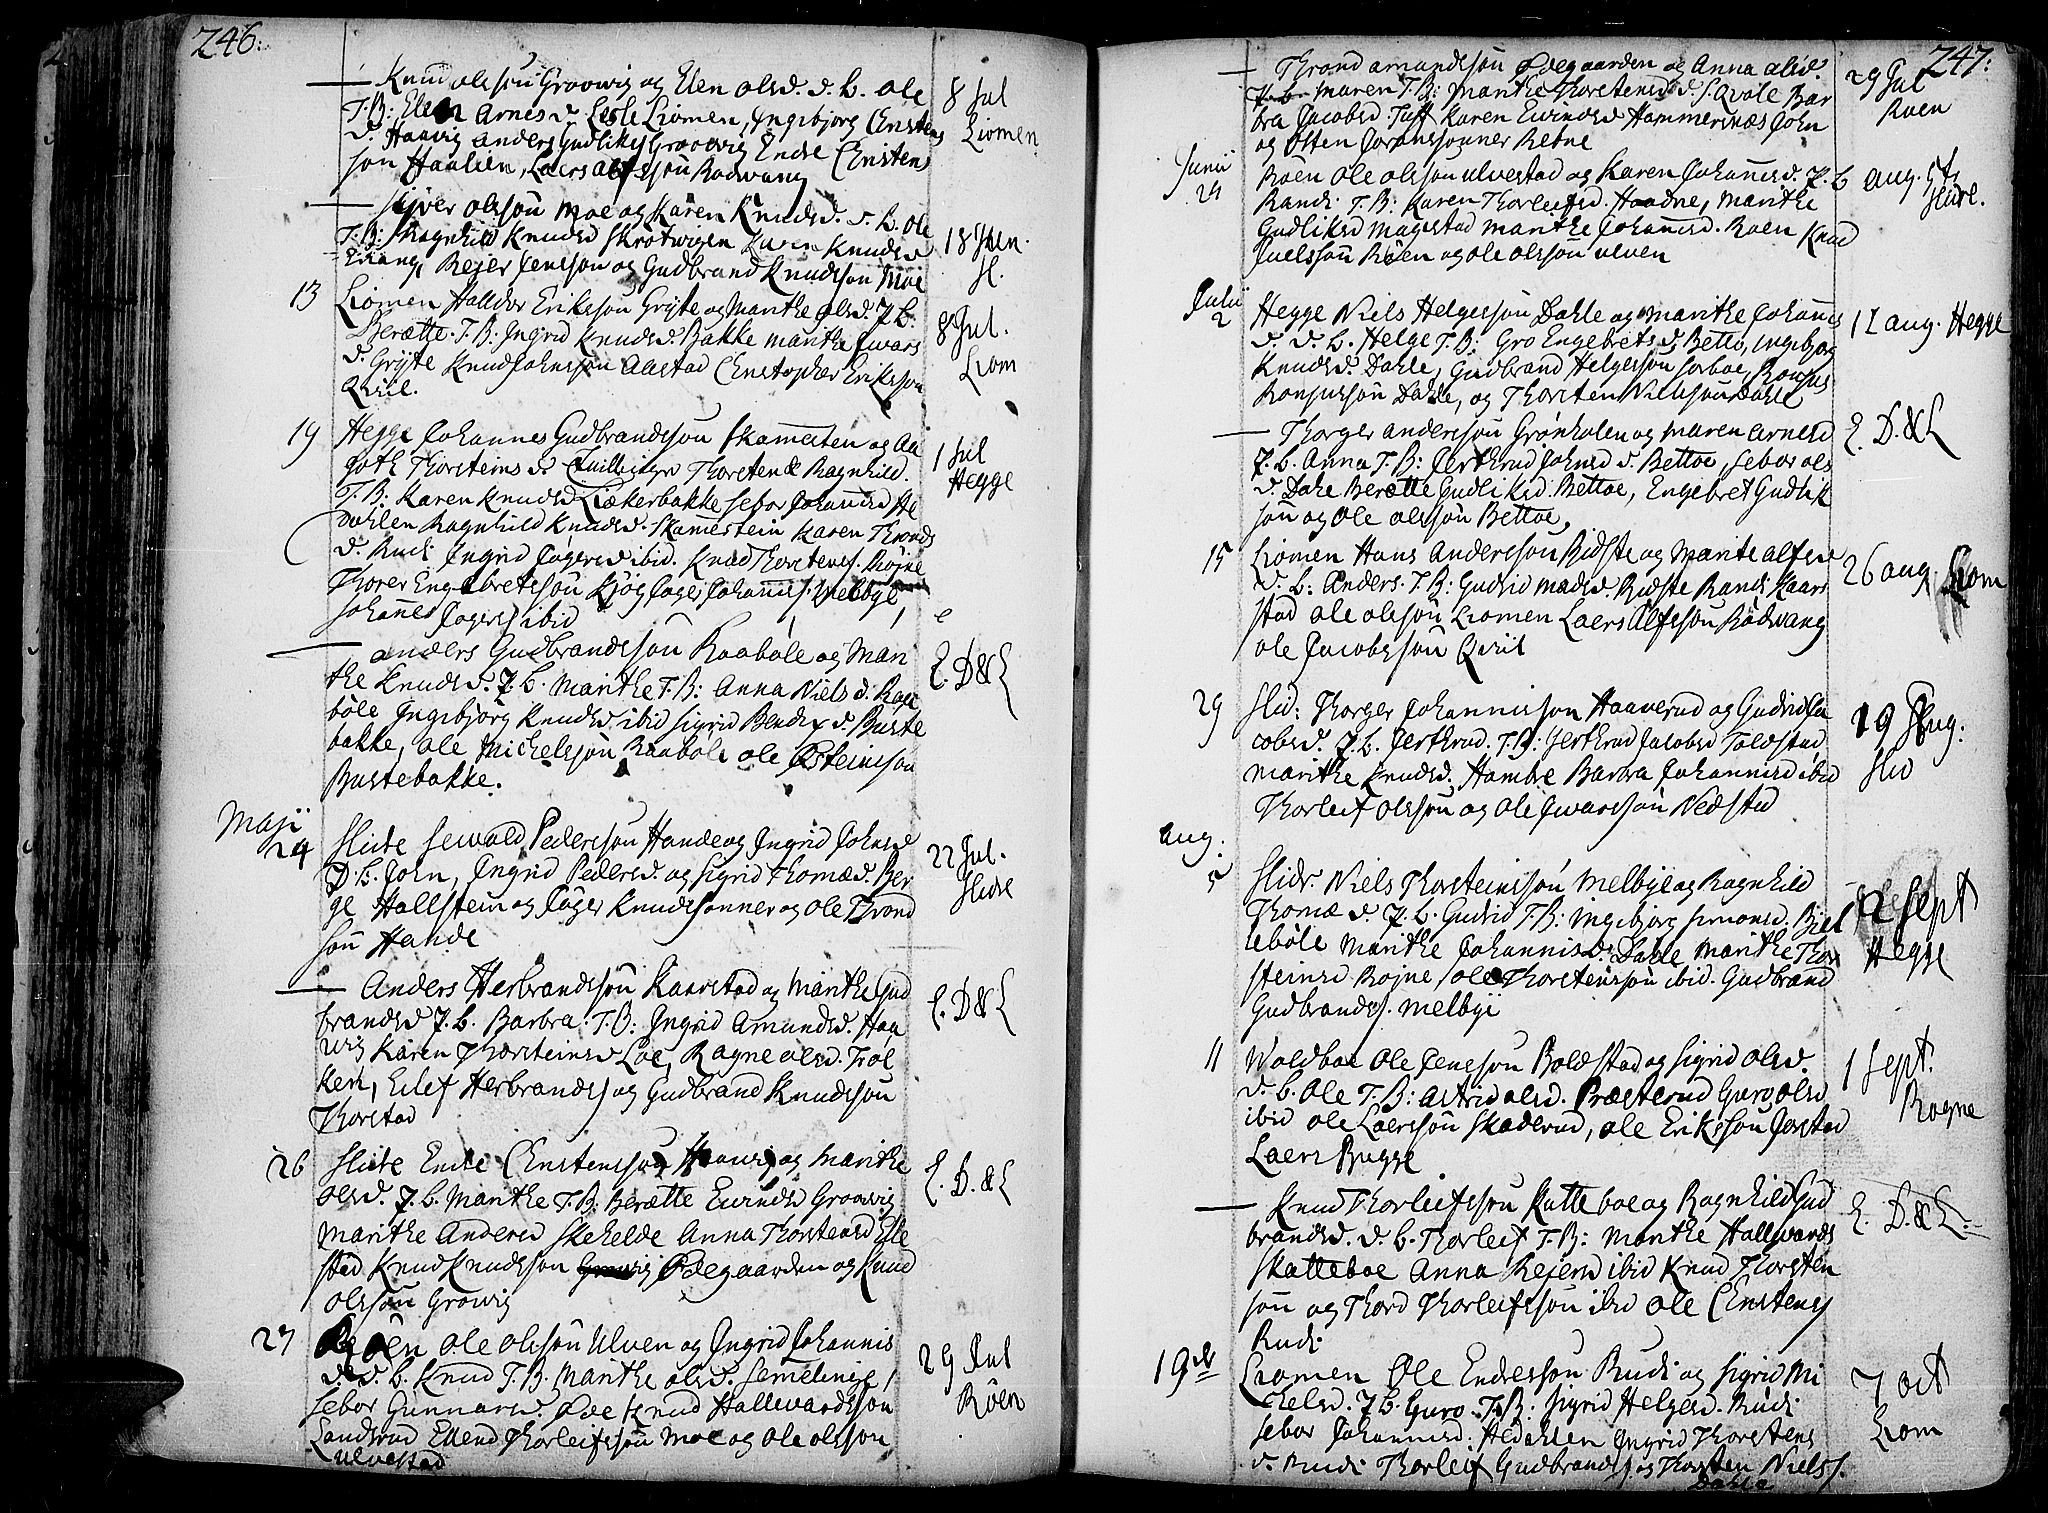 246:
— Knud olssøn Groowig og Elen olsd. d. b. ole
T. B: Elen Arnesd Lisle Liomen, Ingebjorg Enstens
d. Haavig anders Gudliks Groovig Endre Enstens
søn Haalien, Laers Alfssøn Rødwang
8 Jul
Liomen
— Siver olssøn Moe og Karen Knudsd. d. b. ole
T. B: Ragnhild Knudsd Skrøtwigen Karen Knudsd
Erang, Rejer Jenssøn og Gudbrand Knudssøn Moe
18 Jun.
Sl.
13 Liomen Halldor Erikssøn Grÿte og Marithe olsd. J. b.
Berætte. T. B: Ingrid Knudsd. Bakke Marithe Iwars
d. Grÿte Knud Johnssøn Alstad Christopher Erikssøn
Qviil.
8 Jul.
Liom
19 Hegge Johannes Gudbrandssøn Skamesten og Aa
goth Thorsteins d Tvillinger Thorsten & Ragnhild.
T. B: Karen Knudsd Kiækerbakke Sebor Johannisd He
dahlen Ragnhild Knudsd. Skamestein Karen Thronds
d. Rudi Ingrid Jøgersd ibid. Knud Thorstens. Rogne
Thorer Engebretssøn Kiøg Jøger Johannis. Melbye
Johannes Jøgers ibid
1 Jul
Hegge
— anders Gudbrandssøn Raabøle og Mari
the Knudsd. J. b. Marithe T. B: Anna Niels d. Raa
bøle Ingebjorg Knudsd ibid Sigrid Bendix d. Buste
bakke, ole Michelssøn Raabøle ole Østeinssøn
Bustebakke.
E. D & L
Maji
24 Slide Sewald Pederssøn Hande og Ingrid Johnsd
D. b. John, Ingrid Pedersd. og Sigrid Thomæ d. Ber
ge Hallstein og Jøger Knudssønner og Ole Thrond
søn Hande
22 Jul.
Slidre
— Anders Herbrandssøn Kaarstad og Marithe Gud
brandsd J. b. Barbra. T. B: Ingrid Amundsd. Haa
vig Karen Thorsteinsd Loe, Ragne olsd. Trøl
ken, Eilef Herbrands og Gudbrand Knudssøn
Thorstad
E. D & L
26 Slide Endre Enstenssøn Haavig og Marithe
olsd. J. b. Marithe T. B: Berætte Evindsd Groowig
Marithe Andersd Skehelde Anna Thorstensd Elle
stad Knud Knudssøn Ødegaarden og Knud
olssøn Growig
E. D. & L
27 Røen ole olssøn Ulven og Ingrid Johannis
d. d. b. Knud T. B. Marithe olsd. Semelinge,
Sebor Gunnarsd. Øde Knud Hallevardssøn
Sandsrud Ellend Thorleifssøn Moe og ole olssøn
Ulvestad
29 Jul
Røen
247:
— Thrond amundssøn Ødegaarden og Anna olsd.
J. b. Maren T. B: Marithe Thorstensd. S. Qvale Bar
bra Jacobsd Tuff Karen Eivindsd Hammersnæs John
og Østen Joranssønner Retne
29 Jul
Røen
Junii
24 Røen Ole olssøn Ulvestad og Karen Johannisd. J. b
Randi T. B: Karen Thorleifsd. Haadne, Marithe
Gudliksd Magestad Marithe Johannisd. Røen Knud
Juelssøn Røen og ole olssøn ulven
aug. 5t
Slidr.
Julii
2 Hegge Niels Helgessøn Dahle og Marithe Johannis
d d. b. Helge T. B: Gro Engebrets d. Bettø, Ingebjorg
Knudsd. Dahle, Gudbrand Helgessøn Sorboe, Ronjus
Ronjussøn Dahle, og Thorsten Nielssøn Dahle
12 aug. Hegge
— Thorger anderssøn Grønhølen og Maren Arnesd
J. b. Anna T. B: Jerthrud Johnsd d. Bettøe, Sebor ols
d. Dahle Berætte Gudliksd. Bettøe, Engebret Gudlik
søn og Ole olssøn Bettøe,
E. D. & L
15 Liomen Hans Anderssøn Ridste og Marite alfsd
d. b. Anders. T. B: Gudrid Madsd. Ridste Randi Kaars
stad ole olssøn Liomen Laers Alfssøn Rødwang
ole Jacobssøn Qviil
26 aug Liom
29 Slid: Thorger Johannissøn Haaverud og Gudrid Ja
cobsd. J. b. Jerthrud. T. B: Jerthrud Jacobsd Toldstad
Marithe Knudsd. Hambre Barbra Johannisd ibid
Thorleif olssøn og ole Iwarssøn Nedstad
19 Aug:
Slid
Aug.
5 Slidr. Niels Thorsteinssøn Melbye og Ragnhild
Thomæ d. J. b. Gudrid T. B: Ingebjorg Simonsd. Biel
lebøle Marithe Johannisd. Dahle Marithe Thor
steinsd Rogne ole Thorstenssøn ibid. Gudbrand
Gudbrands. Melbyi
2 Sept
Hegge
11 Woldboe Ole Jenssøn Boldstad og Sigrid olsd.
d. b. ole T. B: Astrid olsd. Præsterud Guro olsd
ibid ole Laerssøn Skaderud, ole Erikssøn Jorstad
Laers Bugge
1 Sept.
Rogne
— Knud Thorleifssøn Katteboe og Ragnhild Gud
brandsd. d. b. Thorleif T. B: Marithe Hallwards
Skatteboe Anna Rejersd ibid Knud Thorsten
søn og Thord Thorleifssøn ibid ole Enstens
Rudi
E. D. & L.
19de Liomen Ole Enderssøn Rudi og Sigrid Mi
chelsd. J. b. Guro. T. B: Sigrid Helgesd. Rudi
Sebor Johannisd. Hedahlen Ingrid Thorstens
d. Rudi Thorleif Gudbrands og Thorsten Niels.
Dahle
7 oct
Liom